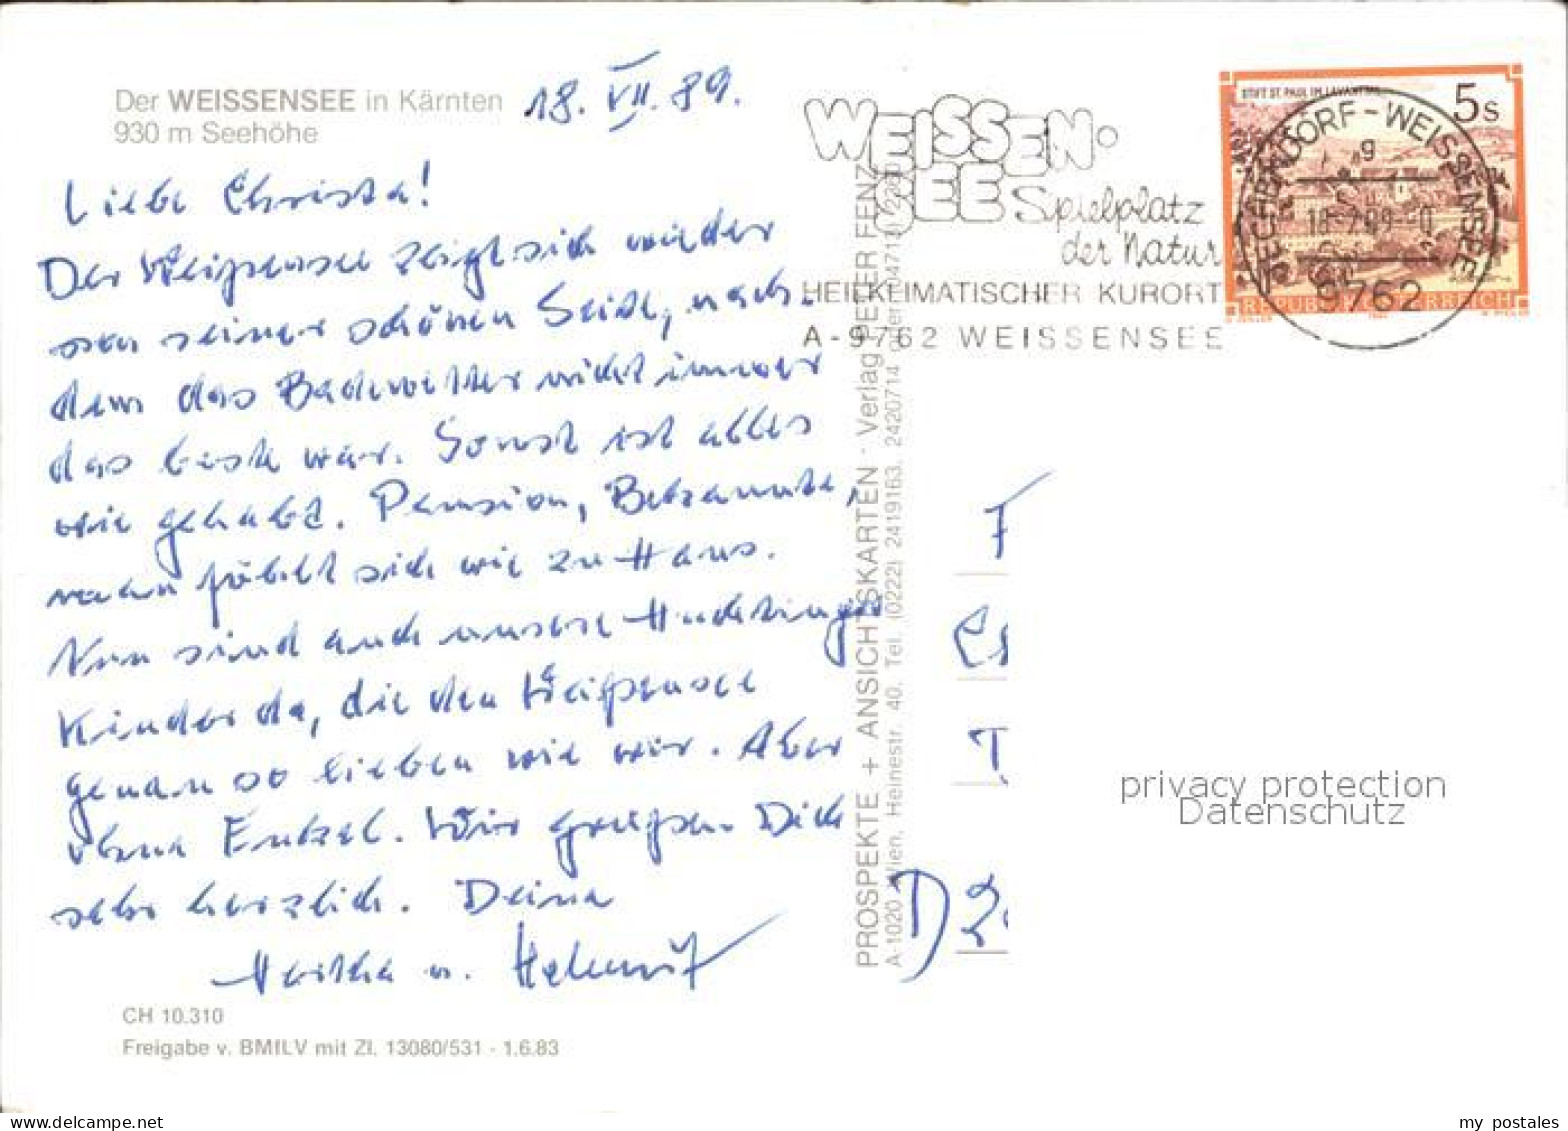 Der WEISSENSEE in Kärnten
930 m Seehöhe
18. VII. 89.
Liebe Christa!
Der Weißensee zeigt sich wieder
von seiner schönen Seite, nach-
dem das Badewetter nicht immer
das beste war. Sonst ist alles
wie gehabt. Pension, Bekannte,
man fühlt sich wie zu Haus.
Nun sind auch unsere
Kinder da, die den Weißensee
genau so lieben wie wir. Aber
ohne Enkel. Wir grüßen Dich
sehr herzlich. Deine
Hertha u. Helmut
CH 10.310
Freigabe v. BMILV mit Zl. 13080/531 - 1.6.83
PROSPEKTE + ANSICHTSKARTEN · Verlag PETER FENZ
A-1020 Wien, Heinestr. 40, Tel. (0222) 2419163, 2420714 oder
WEISSEN-
SEE Spielplatz
der Natur
HEILKLIMATISCHER KURORT
A-9762 WEISSENSEE
STIFT ST. PAUL IM LAVANTTAL
5 S
REPUBLIK ÖSTERREICH
TECHENDORF-WEISSENSEE
g
18.-7.89-
9762
F
Es
T
D
privacy protection
Datenschutz
my postales